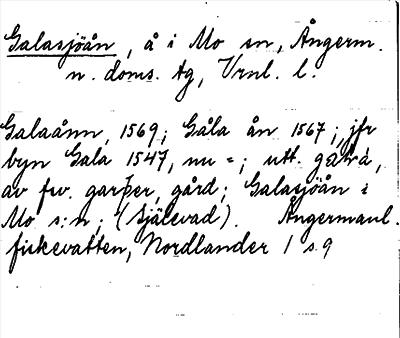 Galasjöån, å i Mo sn, Ångerm.
n. doms. tg, Vrnl. l.
Galaånn, 1569; Gåla ån 1567; jfr
byn Gala 1547, nu =; utt. gàɫrá,
av fw. garþer, gård; Galasjöån i
Mo s:n; (Själevad). Ångermanl.
fiskevatten, Nordlander 1 s 9